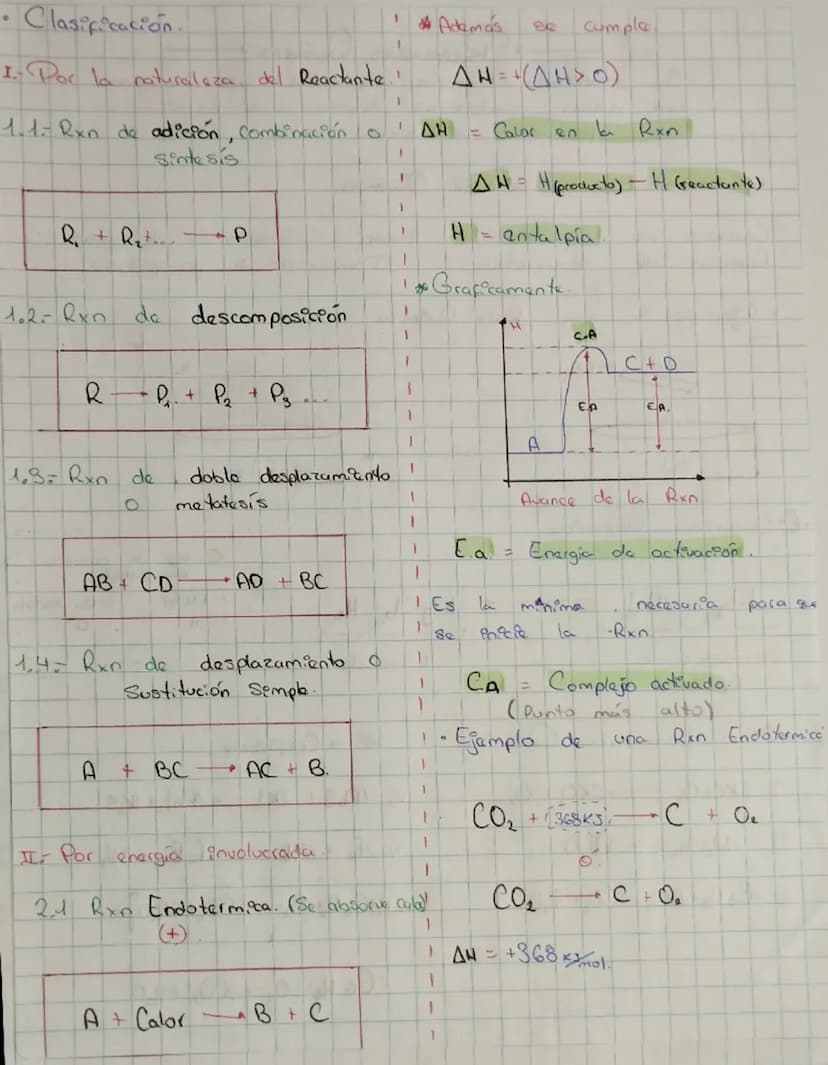 • Clasificación.
I.- Por la naturaleza del Reactante
1.1.- Rxn de adición, combinación o
síntesis
R₁ + R₂+... → P
1.2.- Rxn de descomposición
R → P₁ + P₂ + P₃ ...
1.3.- Rxn de doble desplazamiento
o metatesís
AB + CD → AD + BC
1.4.- Rxn de desplazamiento o
Sustitución Semple.
A + BC → AC + B.
II.- Por energía involucrada
2.1 Rxn Endotermica. (Se absorve calor)
(+)
A + Calor → B + C
* Además se cumple
ΔH = +(ΔH > 0)
ΔH = Calor en la Rxn
ΔH = H(producto) - H(reactante)
H = entalpía
* Graficamente
H
C.A
C + D
E.A
E.A.
A
Avance de la Rxn
Ea = Energía de activación.
Es la mínima necesaria para que
se inicie la Rxn
CA = Complejo activado.
(Punto más alto)
• Ejemplo de una Rxn Endotermica
CO₂ + 368KJ → C + O₂
o
CO₂ → C + O₂
ΔH = +368 KJ/mol.